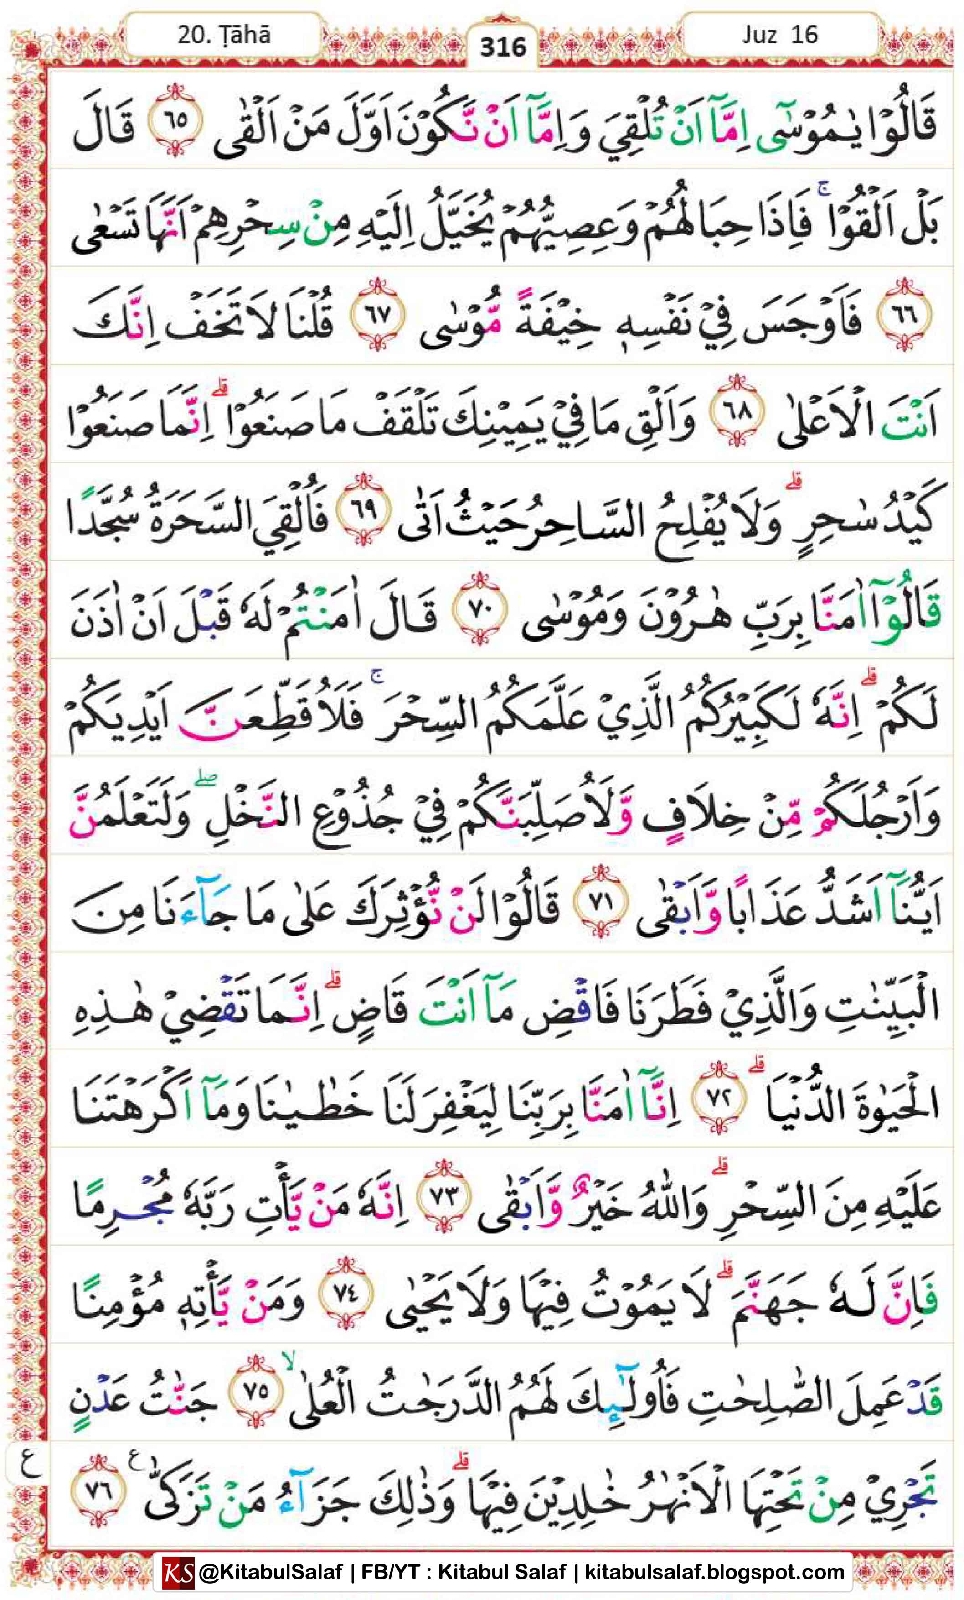 20. Ṭāhā
316
Juz 16
قَالُوْا يٰمُوْسٰٓى اِمَّآ اَنْ تُلْقِيَ وَاِمَّآ اَنْ نَّكُوْنَ اَوَّلَ مَنْ اَلْقٰى ٦٥ قَالَ
بَلْ اَلْقُوْاۚ فَاِذَا حِبَالُهُمْ وَعِصِيُّهُمْ يُخَيَّلُ اِلَيْهِ مِنْ سِحْرِهِمْ اَنَّهَا تَسْعٰى
٦٦ فَاَوْجَسَ فِيْ نَفْسِهٖ خِيْفَةً مُّوْسٰى ٦٧ قُلْنَا لَا تَخَفْ اِنَّكَ
اَنْتَ الْاَعْلٰى ٦٨ وَاَلْقِ مَا فِيْ يَمِيْنِكَ تَلْقَفْ مَا صَنَعُوْاۗ اِنَّمَا صَنَعُوْا
كَيْدُ سٰحِرٍۗ وَلَا يُفْلِحُ السَّاحِرُ حَيْثُ اَتٰى ٦٩ فَاُلْقِيَ السَّحَرَةُ سُجَّدًا
قَالُوْٓا اٰمَنَّا بِرَبِّ هٰرُوْنَ وَمُوْسٰى ٧٠ قَالَ اٰمَنْتُمْ لَهٗ قَبْلَ اَنْ اٰذَنَ
لَكُمْۗ اِنَّهٗ لَكَبِيْرُكُمُ الَّذِيْ عَلَّمَكُمُ السِّحْرَۚ فَلَاُقَطِّعَنَّ اَيْدِيَكُمْ
وَاَرْجُلَكُمْ مِّنْ خِلَافٍ وَّلَاُصَلِّبَنَّكُمْ فِيْ جُذُوْعِ النَّخْلِۖ وَلَتَعْلَمُنَّ
اَيُّنَآ اَشَدُّ عَذَابًا وَّاَبْقٰى ٧١ قَالُوْا لَنْ نُّؤْثِرَكَ عَلٰى مَا جَاۤءَنَا مِنَ
الْبَيِّنٰتِ وَالَّذِيْ فَطَرَنَا فَاقْضِ مَآ اَنْتَ قَاضٍۗ اِنَّمَا تَقْضِيْ هٰذِهِ
الْحَيٰوةَ الدُّنْيَاۗ ٧٢ اِنَّآ اٰمَنَّا بِرَبِّنَا لِيَغْفِرَ لَنَا خَطٰيٰنَا وَمَآ اَكْرَهْتَنَا
عَلَيْهِ مِنَ السِّحْرِۗ وَاللّٰهُ خَيْرٌ وَّاَبْقٰى ٧٣ اِنَّهٗ مَنْ يَّأْتِ رَبَّهٗ مُجْرِمًا
فَاِنَّ لَهٗ جَهَنَّمَۗ لَا يَمُوْتُ فِيْهَا وَلَا يَحْيٰى ٧٤ وَمَنْ يَّأْتِهٖ مُؤْمِنًا
قَدْ عَمِلَ الصّٰلِحٰتِ فَاُولٰۤىِٕكَ لَهُمُ الدَّرَجٰتُ الْعُلٰىۙ ٧٥ جَنّٰتُ عَدْنٍ
تَجْرِيْ مِنْ تَحْتِهَا الْاَنْهٰرُ خٰلِدِيْنَ فِيْهَاۗ وَذٰلِكَ جَزَاۤءُ مَنْ تَزَكّٰى ࣖ ٧٦
ع
KS @KitabulSalaf | FB/YT : Kitabul Salaf | kitabulsalaf.blogspot.com